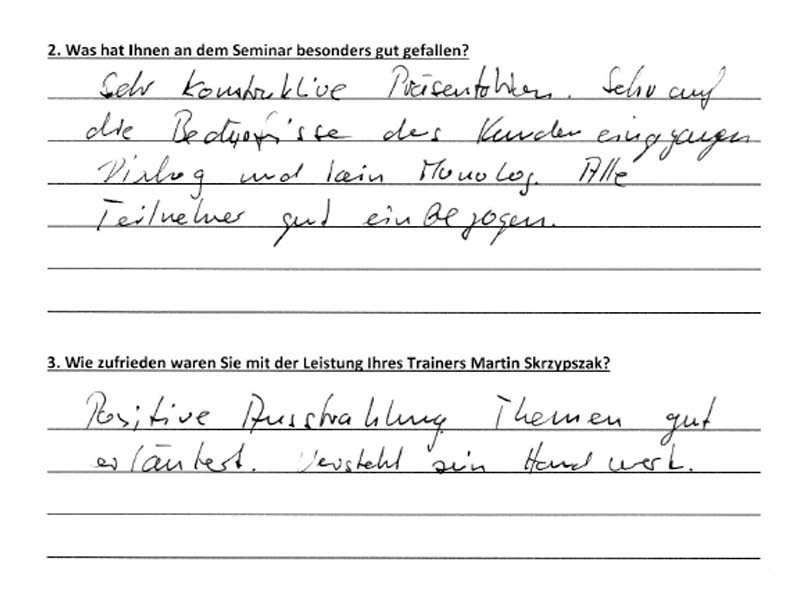 2. Was hat Ihnen an dem Seminar besonders gut gefallen?
Sehr konstruktive Präsentation. Sehr auf
die Bedürfnisse des Kunden eingegangen
Dialog und kein Monolog. Alle
Teilnehmer gut einbezogen.
3. Wie zufrieden waren Sie mit der Leistung Ihres Trainers Martin Skrzypszak?
Positive Ausstrahlung Themen gut
erläutert. Versteht sein Handwerk.